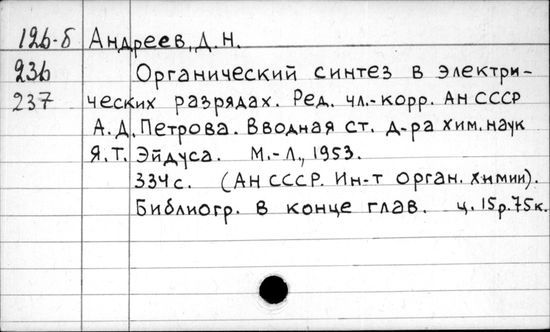 126-б Андреев, Д. Н.
236 Органический синтез в электри-
237 ческих разрядах. Ред. чл.-корр. АН СССР
А. Д. Петрова. Вводная ст. д-ра хим. наук
Я. Т. Эйдуса. М.-Л., 1953.
334 с. (АН СССР. Ин-т орган. химии).
Библиогр. в конце глав. ц. 15р.75к.